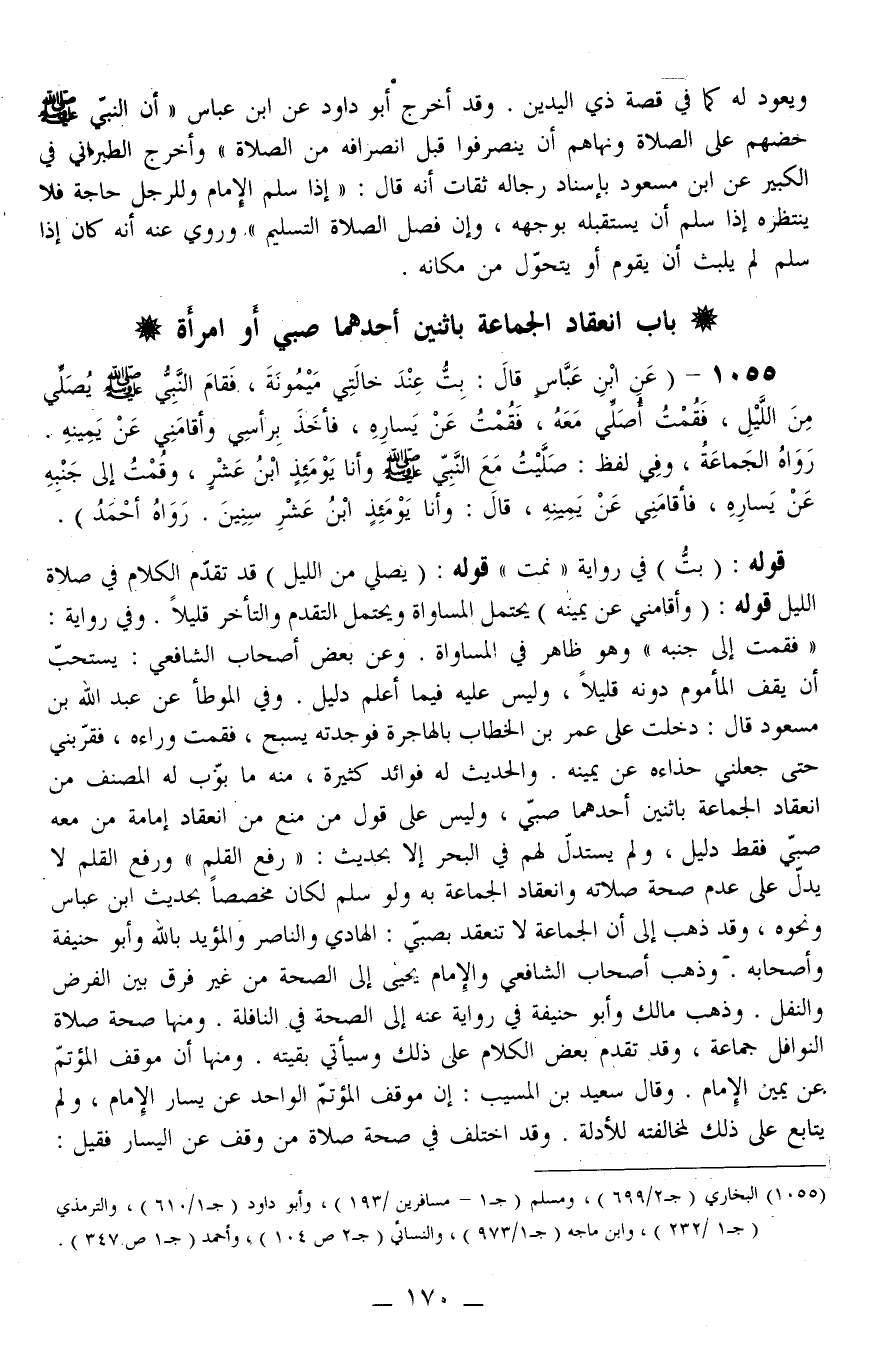 ويعود له كما في قصة ذي اليدين . وقد أخرج أبو داود عن ابن عباس « أن النبيّ ﷺ
حضهم على الصلاة ونهاهم أن ينصرفوا قبل انصرافه من الصلاة » وأخرج الطبراني في
الكبير عن ابن مسعود بإسناد رجاله ثقات أنه قال : « إذا سلم الإمام وللرجل حاجة فلا
ينتظره إذا سلم أن يستقبله بوجهه ، وإن فصل الصلاة التسليم » وروي عنه أنه كان إذا
سلم لم يلبث أن يقوم أو يتحوّل من مكانه .
باب انعقاد الجماعة باثنين أحدهما صبي أَو امرأَة
١٠٥٥ - ( عَنِ ابْنِ عَبَّاسٍ قالَ : بِتُّ عِنْدَ خالَتِي مَيْمُونَةَ ، فَقامَ النَّبِيُّ ﷺ يُصَلِّي
مِنَ اللَّيْلِ ، فَقُمْتُ أُصَلِّي مَعَهُ ، فَقُمْتُ عَنْ يَسارِهِ ، فأخَذَ بِرأسِي وأقامَنِي عَنْ يَمِينِهِ .
رَوَاهُ الجَماعَةُ ، وفِي لفظ : صَلَّيْتُ مَعَ النَّبِيّ ﷺ وأنا يَوْمَئِذٍ ابْنُ عَشْرٍ ، وقُمْتُ إلى جَنْبِهِ
عَنْ يَسارِهِ ، فأقامَنِي عَنْ يَمِينِهِ ، قالَ : وأنا يَوْمَئِذٍ ابْنُ عَشْرِ سِنِينَ . رَوَاهُ أحْمَدُ ) .
قوله : ( بتُّ ) في رواية « نمت » قوله : ( يصلي من الليل ) قد تقدّم الكلام في صلاة
الليل قوله : ( وأقامني عن يمينه ) يحتمل المساواة ويحتمل التقدم والتأخر قليلاً . وفي رواية :
« فقمت إلى جنبه » وهو ظاهر في المساواة . وعن بعض أصحاب الشافعي : يستحبّ
أن يقف المأموم دونه قليلاً ، وليس عليه فيما أعلم دليل . وفي الموطأ عن عبد الله بن
مسعود قال : دخلت على عمر بن الخطاب بالهاجرة فوجدته يسبح ، فقمت وراءه ، فقرّبني
حتى جعلني حذاءه عن يمينه . والحديث له فوائد كثيرة ، منه ما بوّب له المصنف من
انعقاد الجماعة باثنين أحدهما صبيّ ، وليس على قول من منع من انعقاد إمامة من معه
صبيّ فقط دليل ، ولم يستدلّ لهم في البحر إلا بحديث : « رفع القلم » ورفع القلم لا
يدلّ على عدم صحة صلاته وانعقاد الجماعة به ولو سلم لكان مخصصاً بحديث ابن عباس
ونحوه ، وقد ذهب إلى أن الجماعة لا تنعقد بصبيّ : الهادي والناصر والمؤيد بالله وأبو حنيفة
وأصحابه . وذهب أصحاب الشافعي والإمام يحيى إلى الصحة من غير فرق بين الفرض
والنفل . وذهب مالك وأبو حنيفة في رواية عنه إلى الصحة في النافلة . ومنها صحة صلاة
النوافل جماعة ، وقد تقدم بعض الكلام على ذلك وسيأتي بقيته . ومنها أن موقف المؤتمّ
عن يمين الإمام . وقال سعيد بن المسيب : إن موقف المؤتمّ الواحد عن يسار الإمام ، ولم
يتابع على ذلك لمخالفته للأدلة . وقد اختلف في صحة صلاة من وقف عن اليسار فقيل :
(١٠٥٥) البخاري ( جـ٢/ ٦٩٩ ) ، ومسلم ( جـ١ - مسافرين /١٩٣ ) ، وأبو داود ( جـ١/ ٦١٠ ) ، والترمذي
( جـ١ /٢٣٢ ) ، وابن ماجه ( جـ١/ ٩٧٣ ) ، والنسائي ( جـ٢ ص ١٠٤ ) ، وأحمد ( جـ١ ص ٣٤٧ ) .
— ١٧٠ —